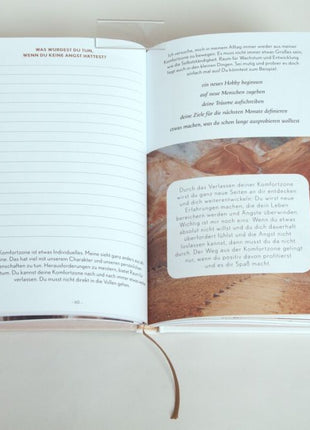 WAS WÜRDEST DU TUN,
WENN DU KEINE ANGST HÄTTEST?
Komfortzone ist etwas Individuelles. Meine sieht ganz anders aus
eine. Das hat viel mit unserem Charakter und unseren persönlichen
anschauungen zu tun. Herausforderungen zu meistern, bietet Raum für
tum. Du kannst deine Komfortzone nach und nach immer weiter
verlassen. Du musst nicht direkt in die Vollen gehen.
- 60 -
Ich versuche, mich in meinem Alltag immer wieder aus meiner
Komfortzone zu bewegen. Es muss nicht immer etwas Großes sein,
wie die Selbstständigkeit. Raum für Wachstum und Entwicklung
liegt auch in den kleinen Dingen. Sei mutig und probier es doch
einfach mal aus! Du könntest zum Beispiel:
ein neues Hobby beginnen
auf neue Menschen zugehen
deine Träume aufschreiben
deine Ziele für die nächsten Monate definieren
etwas machen, was du schon lange ausprobieren wolltest
Durch das Verlassen deiner Komfortzone
wirst du ganz neue Seiten an dir entdecken
und dich weiterentwickeln: Du wirst neue
Erfahrungen machen, die dein Leben
bereichern werden und Ängste überwinden.
Wichtig ist mir noch eins: Wenn du etwas
absolut nicht willst und du dich dauerhaft
überfordert fühlst und die Angst nicht
loslassen kannst, dann musst du da nicht
durch. Der Weg aus der Komfortzone gelingt
nur, wenn du positiv davon profitierst
und es dir Spaß macht.